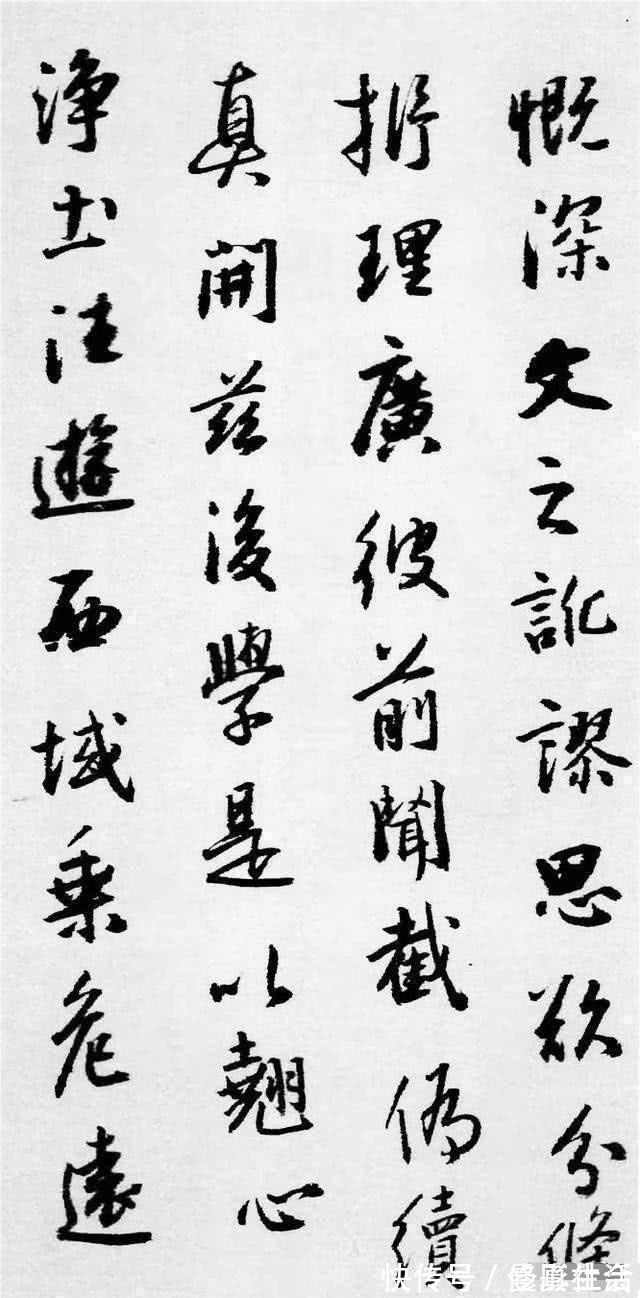 慨深文之訛謬思欲分條
析理廣彼前聞截偽續
真開茲後學是以翹心
淨土法遊西域乘危遠
快传号 /